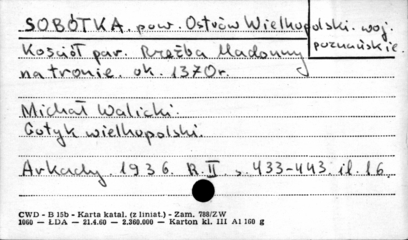 SOBÓTKA. pow. Ostrów Wielkopolski. woj. poznańskie.
Kościół par. Rzeźba Madonny
na tronie. ok. 1370r.
Michał Walicki.
Gotyk wielkopolski.
Arkady. 1936. R. II s. 433-443. il. 16.
CWD - B 15b - Karta katal. (z liniat.) - Zam. 788/ZW
1060 — ŁDA — 21.4.60 — 2.360.000 — Karton kl. III A1 160 g